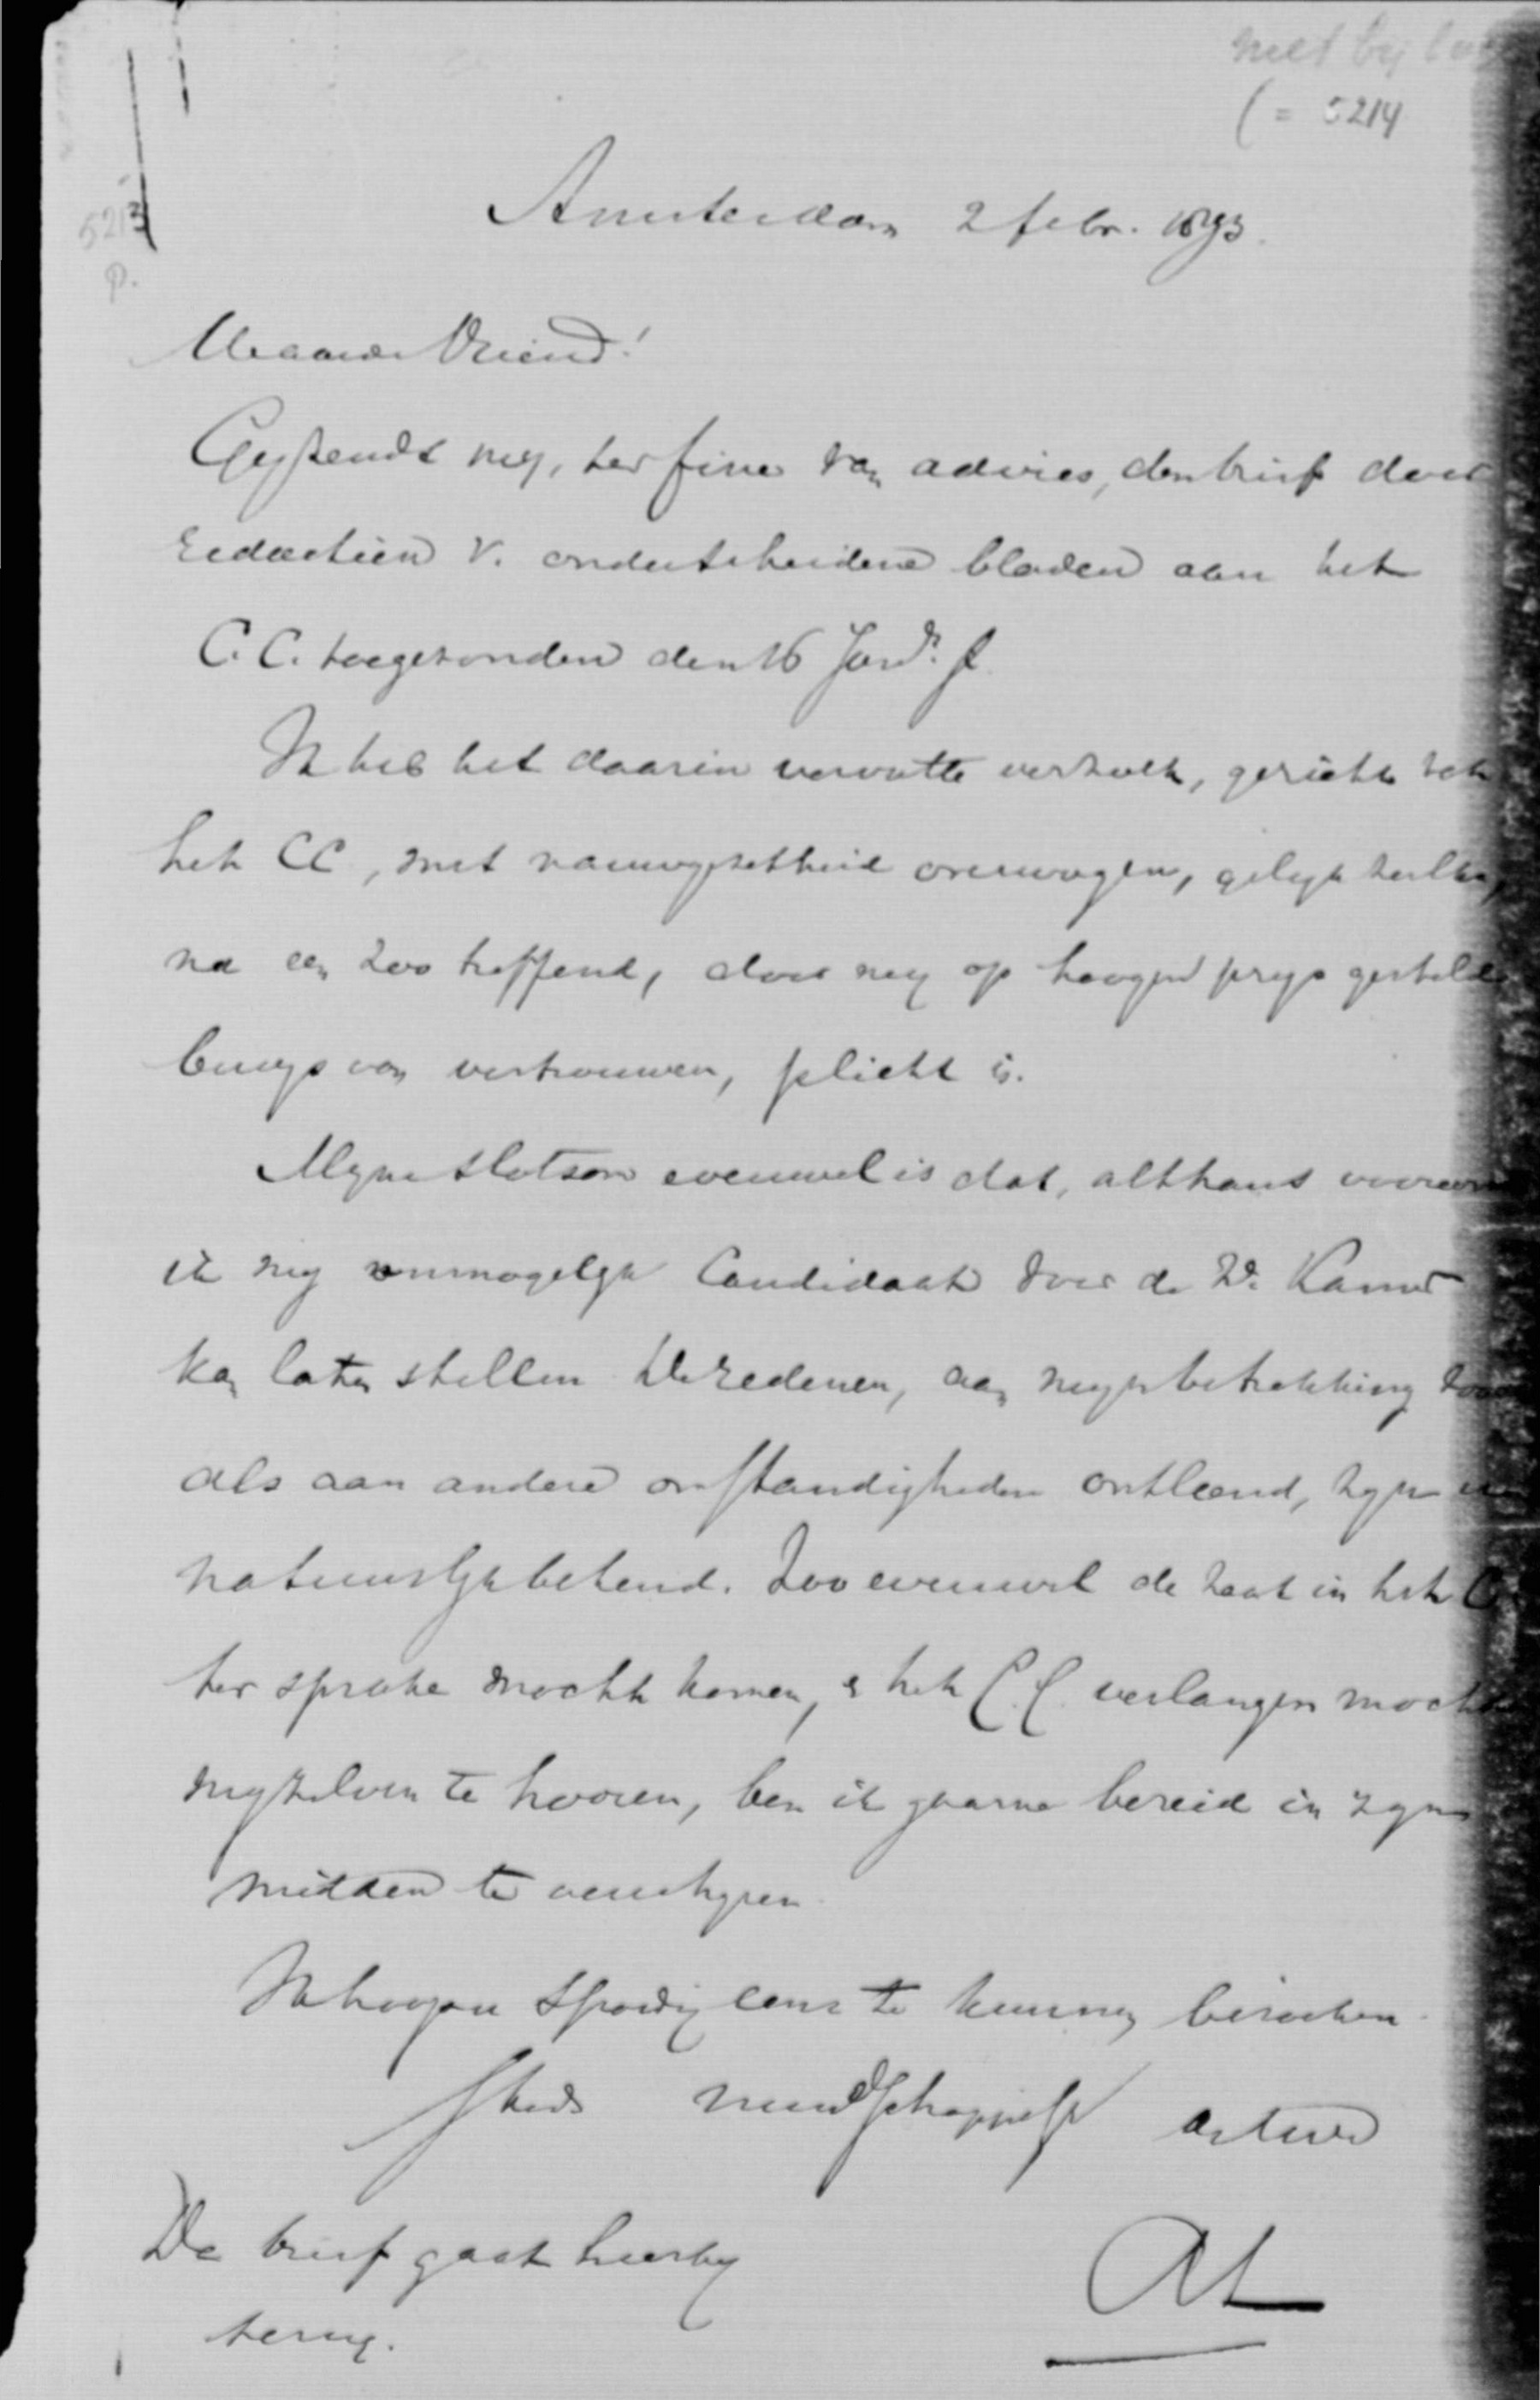 met bij
( = 5214
5213
P.
Amsterdam 2 febr. 1893.
Waarde Vriend!
Gij zendt mij, ter fine van advies, den brief door
redactien v. onderscheidene bladen aan het
C.C. toegezonden den 16 Jan. jl.
Ik heb het daarin vervatte verzoek, gericht tot
het CC, met nauwgezetheid overwogen, gelijk zulks,
na een zoo treffend, door mij op hoogen prijs gesteld
bewijs van vertrouwen, plicht is.
Mijne slotsom evenwel is dat, althans vooreerst
ik mij onmogelijk Candidaat voor de 2e Kamer
kan laten stellen. De redenen, aan mijn betrekking zoowel
als aan andere omstandigheden ontleend, zijn u
natuurlijk bekend. Zoo evenwel de zaak in het C
ter sprake mocht komen, & het C.C. verlangen mocht
mijzelven te hooren, ben ik gaarne bereid in zijn
midden te verschijnen.
Ik hoop u spoedig eens te kunnen bezoeken.
Steeds vriendschappelijk
De brief gaat hierbij
terug.